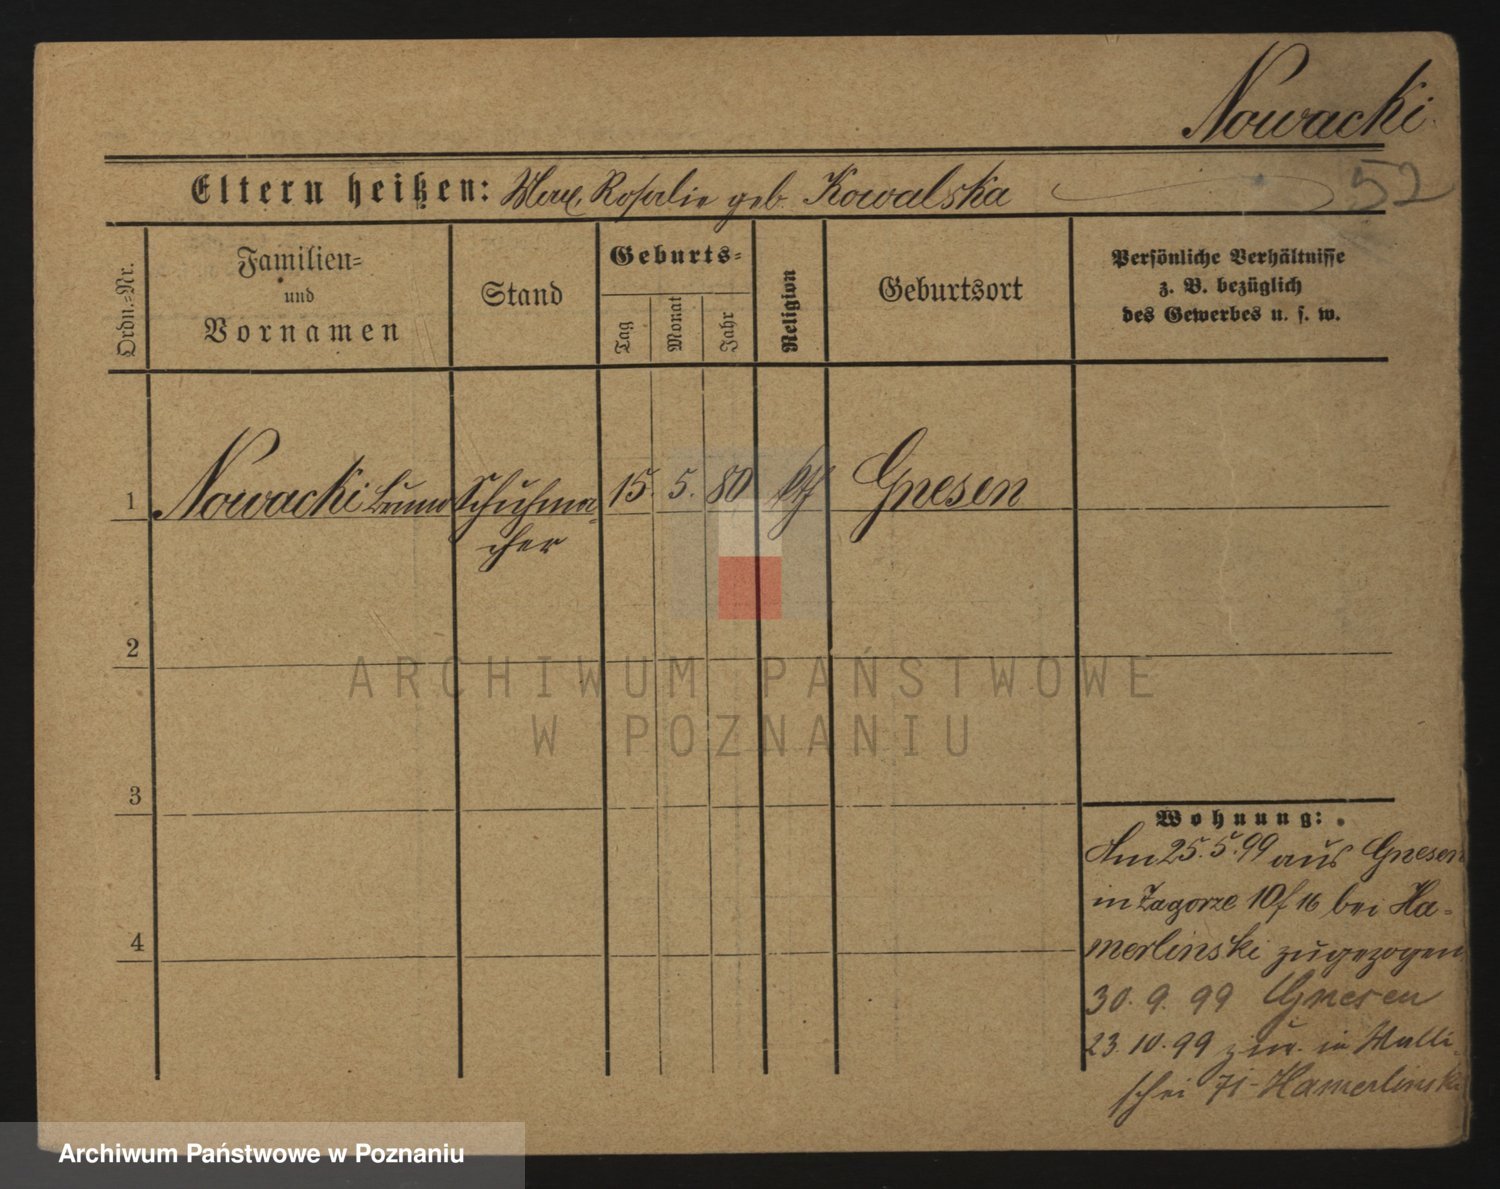 Nowacki
52
Eltern heißen: Rosalie geb. Kowalska
Ordn.=Nr.
Familien=
und
Vornamen
Stand
Geburts=
Tag
Monat
Jahr
Religion
Geburtsort
Persönliche Verhältnisse
z. B. bezüglich
des Gewerbes u. s. w.
1 Nowacki Bruno Schuhma= 15. 5. 80 kth Gnesen
cher
2
3
4
Wohnung:
Am 25.5.99 aus Gnesen
in Zagorze 10/16 bei Ha=
merlinski zugezogen
30. 9. 99 Gnesen
23. 10. 99 zur. in Walli=
schei 71 Hamerlinski
ARCHIWUM PAŃSTWOWE
W POZNANIU
Archiwum Państwowe w Poznaniu